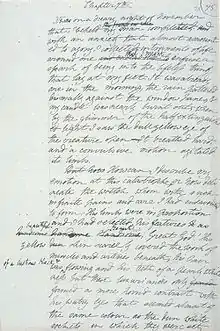 Chapter 7th
It was on a dreary night of November
that I beheld my man completed and
with an anxiety that almost amounted
to agony I collected instruments of life
around me
spark of being into the lifeless thing
that lay at my feet. It was already
one in the morning, the rain pattered
dismally against the window panes, &
my candle was nearly burnt out, when
by the glimmer of the half extinguish
ed light I saw the dull yellow eye of
the creature open. It breathed hard,
and a convulsive motion agitated
its limbs.
But how
How can I describe my
emotion at this catastrophe; or how deli
neate the wretch whom with such in
finite pains and care I had endeavoured
to form. His limbs were in proportion
and I had selected his features
as
handsome
Handsome
Great God! His
yellow skin scarcely covered the work of
muscles and arteries beneath; his hair
of a lustrous black &
flowing and his teeth of a pearly white
ness but these luxuriances only
formed a more horrid contrast with
his watry eyes that seemed almost of
the same colour as the dun white
sockets in which they were set,